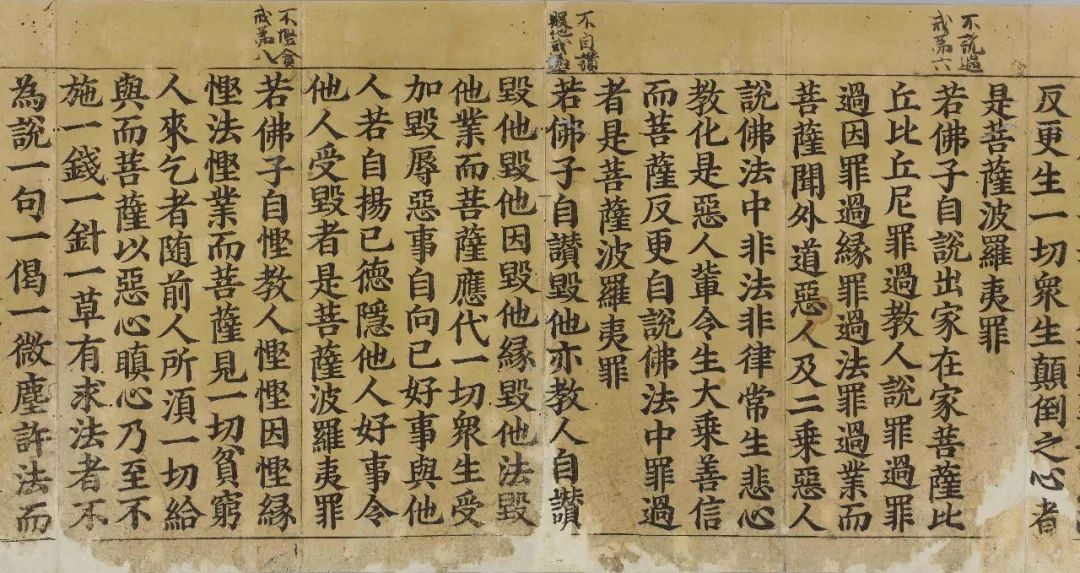 反更生一切衆生顛倒之心者
是菩薩波羅夷罪
不說過
戒第六
若佛子自說出家在家菩薩比
丘比丘尼罪過教人說罪過罪
過因罪過緣罪過法罪過業而
菩薩聞外道惡人及二乘惡人
說佛法中非法非律常生悲心
教化是惡人輩令生大乘善信
而菩薩反更自說佛法中罪過
者是菩薩波羅夷罪
不自讚
毀他戒第七
若佛子自讚毀他亦教人自讚
毀他毀他因毀他緣毀他法毀
他業而菩薩應代一切衆生受
加毀辱惡事自向已好事與他
人若自揚已德隱他人好事令
他人受毀者是菩薩波羅夷罪
不慳貪
戒第八
若佛子自慳教人慳慳因慳緣
慳法慳業而菩薩見一切貧窮
人來乞者随前人所湏一切給
與而菩薩以惡心瞋心乃至不
施一錢一針一草有求法者不
為說一句一偈一微塵許法而